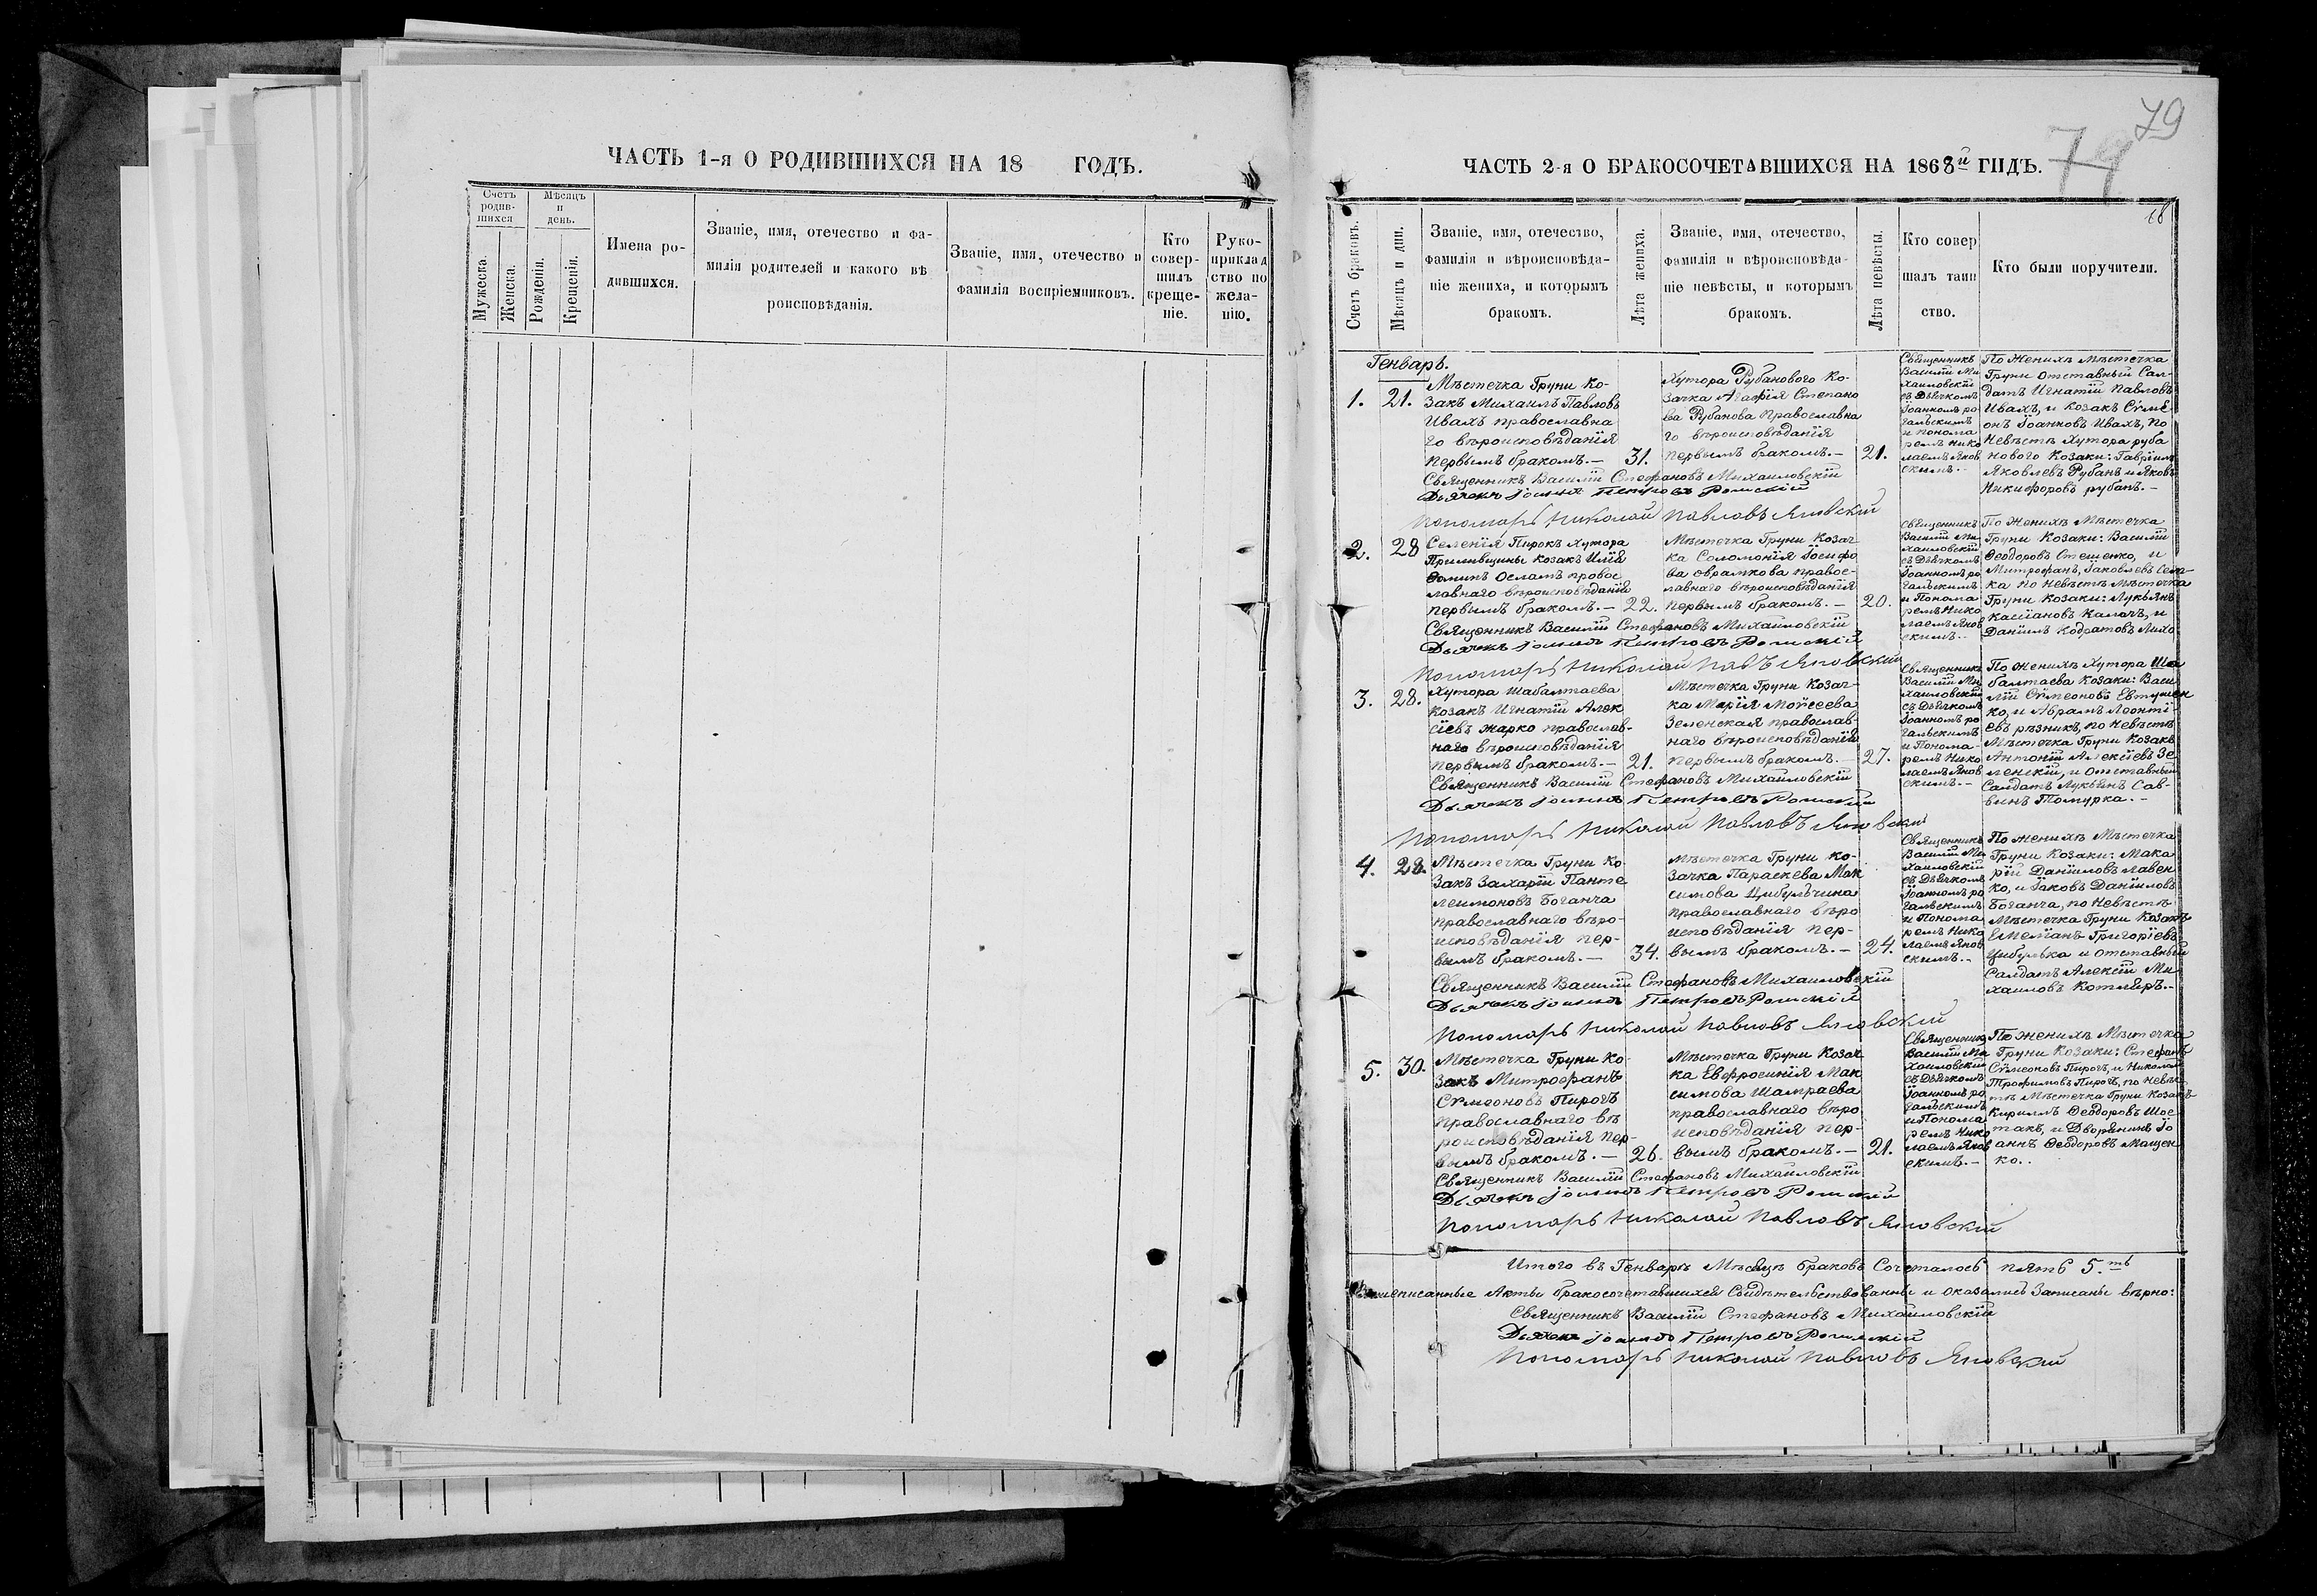 ЧАСТЬ 1-я О РОДИВШИХСЯ НА 18 ГОДЪ.
Счетъ родив-шихся
Мѣсяцъ и день.
Мужеска.
Женска.
Рожденія.
Крещенія.
Имена ро-
дившихся.
Званіе, имя, отечество и фа-
милія родителей и какого вѣ
роисповѣданія.
Званіе, имя, отечество и
фамилія воспріемниковъ.
Кто
совер-
шилъ
креще-
ніе.
Руко-
приклад
ство по
жела-
нію.
79
79
ЧАСТЬ 2-я О БРАКОСОЧЕТАВШИХСЯ НА 1868й ГИДЪ.
18
Счетъ браковъ.
Мѣсяцъ и дни.
Званіе, имя, отечество,
фамилія и вѣроисповѣда-
ніе жениха, и которымъ
бракомъ.
Лѣта жениха.
Званіе, имя, отечество,
фамилія и вѣроисповѣда-
ніе невѣсты, и которымъ
бракомъ.
Лѣта невѣсты.
Кто совер
шалъ таин
ство.
Кто были поручители.
Генварь.
1. 21.
Мѣстечка Груни Ко-
закъ Михаилъ Павловъ
Ивахъ православна
го вѣроисповѣданія
первымъ бракомъ.— 31.
Хутора Рубанового Ко-
зачка Агафія Степано
ва Рубанова Православна
го вѣроисповѣданія
первымъ бракомъ.— 21.
Священникъ
Василій Ми
хаиловскій
съ Дьячкомъ
Іоанномъ ро
гальскимъ
и понома
ремъ Нико
лаемъ Янов
скимъ.-
По Женихѣ Мѣстечка
Груни отставный Сал-
датъ Игнатій Павловъ
Ивахъ, и Козакъ Сѵме
онъ Іоанновъ Ивахъ, по
Невѣстѣ Хутора руба
нового Козаки: Гавріилъ
Яковлевъ Рубанъ и Яковъ
Никифоровъ рубанъ.-
Священникъ Василій Стефановъ Михаиловскій
Дьячекъ Іоаннъ Петровъ
Пономарь Николай Павловъ Яновскій
2. 28
Селенія Пирокъ Хутора
козакъ Илія
православнаго вѣроисповѣданія
первымъ бракомъ.— 22.
Мѣстечка Груни Козач
ка Соломонія Іосифо
ва
правос-
лавнаго вѣроисповѣданія
первымъ бракомъ.— 20.
Священникъ
Василій Ми
хаиловскій
съ Дьячкомъ
Іоанномъ ро
гальскимъ
и Понома
ремъ Нико
лаемъ Янов
скимъ.-
По Женихѣ Мѣстечка
Груни Козаки: Василій
Ѳеодоровъ Стешенко, и
Митрофанъ Іаковлевъ
ка по Невѣстѣ Мѣстечка
Груни Козаки: Лукьянъ
Касіановъ Калачъ, и
Даніилъ Кодратовъ
Священникъ Василій Стефановъ Михаиловскій
Дьячекъ Іоаннъ Петровъ
Пономарь Николай Яновскій
3. 28.
Хутора Шабалтаева
козакъ Игнатій Алек
сіевъ Жарко православ-
наго вѣроисповѣданія
первымъ бракомъ.— 21.
Мѣстечка Груни Козач-
ка Марія Моисеева
Зеленская православ-
наго вѣроисповѣданія
первымъ бракомъ.— 27.
Священникъ
Василій Ми
хаиловскій
съ Дьячкомъ
Іоанномъ ро
гальскимъ
и Понома
ремъ Нико
лаемъ Янов
скимъ.-
По Женихѣ Хутора Ша
балтаева Козаки: Васи
лій Сѵмеоновъ Евтушен
ко, и Абрамъ Леонті-
евъ рѣзникъ, по Невѣстѣ
Мѣстечка Груни Козакъ
Антоній Алексіевъ Зе
ленскій, и отставный
Салдатъ Лукьянъ Сав-
винъ Томурка.-
Священникъ Василій Стефановъ Михаиловскій
Дьячекъ Іоаннъ Петровъ
Пономарь Николай Павловъ Яновскій
4. 28.
Мѣстечка Груни Ко-
закъ Захарій Панте
леимоновъ Боганча
православнаго вѣро-
исповѣданія пер-
вымъ бракомъ.— 34.
Мѣстечка Груни Ко-
зачка Параскева Мак
симова Цибульчина
православнаго вѣро
исповѣданія пер-
вымъ бракомъ.— 24.
Священникъ
Василій Ми
хаиловскій
съ Дьячкомъ
Іоанномъ ро
гальскимъ
и Понома
ремъ Нико
лаемъ Янов
скимъ.-
По женихѣ Мѣстечка
Груни Козаки: Мака
рій Даніиловъ Лавен
ко, и Іаковъ Даніиловъ
Боганча, по Невѣстѣ
Мѣстечка Груни Козакъ
Емеліанъ Григоріевъ
Цибулька и отставный
Салдатъ Алексій Ми
хаиловъ Котляръ.-
Священникъ Василій Стефановъ Михаиловскій
Дьячекъ Іоаннъ Петровъ
Пономарь Николай Павловъ Яновскій
5. 30.
Мѣстечка Груни Ко
закъ Митрофанъ
Сѵмеоновъ Пирогъ
православнаго вѣ
роисповѣданія пер-
вымъ бракомъ.— 26.
Мѣстечка Груни Козач
ка Евфросинія Мак
симова Шамраева
православнаго вѣро
исповѣданія пер-
вымъ бракомъ.— 21.
Священникъ
Василій Ми
хаиловскій
съ Дьячкомъ
Іоанномъ ро
гальскимъ
и Понома
ремъ Нико
лаемъ Янов
скимъ.-
По женихѣ Мѣстечка
Груни Козаки: Стефанъ
Сѵмеоновъ Пирогъ, и Николай
Трофимовъ Пирогъ, по Невѣс
тѣ Мѣстечка Груни Козакъ
Кириллъ Ѳеодоровъ Шос
такъ, и Дворянинъ Іо
аннъ Ѳеодоровъ Мащен
ко..
Священникъ Василій Стефановъ Михаиловскій
Дьячекъ Іоаннъ Петровъ
Пономарь Николай Павловъ Яновскій
Итого въ Генварѣ Мѣсяцѣ браковъ Сочеталось пять 5.ть
Вышеписанные Акты бракосочетавшихся Свидѣтельствованы и оказались Записаны вѣрно:
Священникъ Василій Стефановъ Михаиловскій
Дьячекъ Іоаннъ Петровъ
Пономарь Николай Павловъ Яновскій